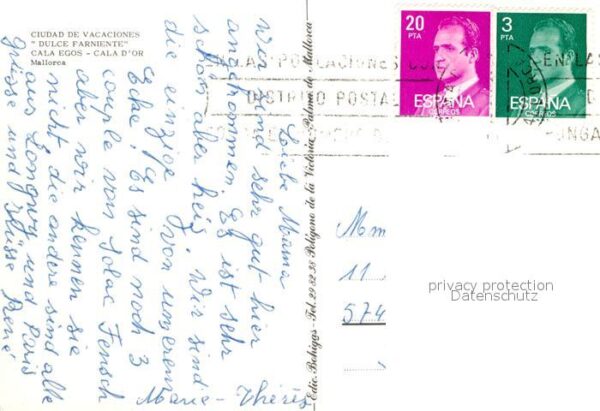 CIUDAD DE VACACIONES
" DULCE FARNIENTE"
CALA EGOS - CALA D'OR
Mallorca
Liebe Mama
Wir sind sehr gut hier
angekommen Es ist sehr
schön aber heis, Wir sind
die einzige von unserem
Ecke, es sind noch 3
couple von Solac Fensch
aber wir kennen sie
nicht die andere sind alle
aus Longwy und Paris
Grüsse und Küsse René
Marie-Thérèse
Edic. Bohigas - Tel. 29 82 38 Polígono de la Victoria - Palma de Mallorca
20
PTA
ESPAÑA
CORREOS
3
PTA
ESPAÑA
CORREOS
DISTRITO POSTAL
Mm
11
574
privacy protection
Datenschutz